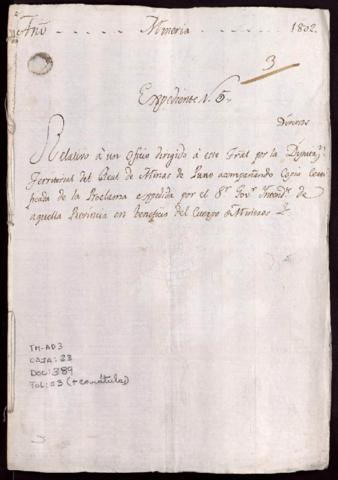 Año ..... Mineria ..... 1802.
3
Expediente N. 5.
Diversos
Relativo â un Oficio dirigido â este Tral por la Diputaⁿ.
Territorial del Real de Minas de Puno acompañando Copia Certi
ficada de la Proclama expedida por el Sʳ. Govʳ. Intendᵗᵉ. de
aquella Provincia en beneficio del Cuerpo de Mineros
TM-AD3
CAJA: 23
DOC: 389
FOL: 03 (+ carátula)